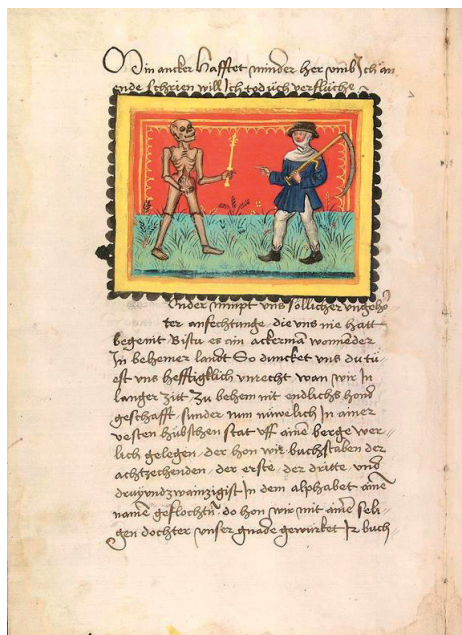 Min ancker hafftet minder her umb Ich an
ende schrien will Ich tod uch verflůche
Under nimpt uns söllicher ungehö
ter anfechtunge die uns nie hatt
begenit Bistu es ain ackermã wonneder
In behemer landt So duncket uns du tů
est uns hefftigklich unrecht wan wir In
langer zitt zů behem nit endlichs hond
geschafft sunder nun nüwelich In ainer
vesten hübschen stat uff aine berge wer
lich gelegen der hon wir buchstaben der
achtzechenden der erste der dritte und
druyundzwainzigist In dem alphabet aine
name geflochtn do hon wir mit aine seli
gen dochter unser gnade gewürket Ir buch